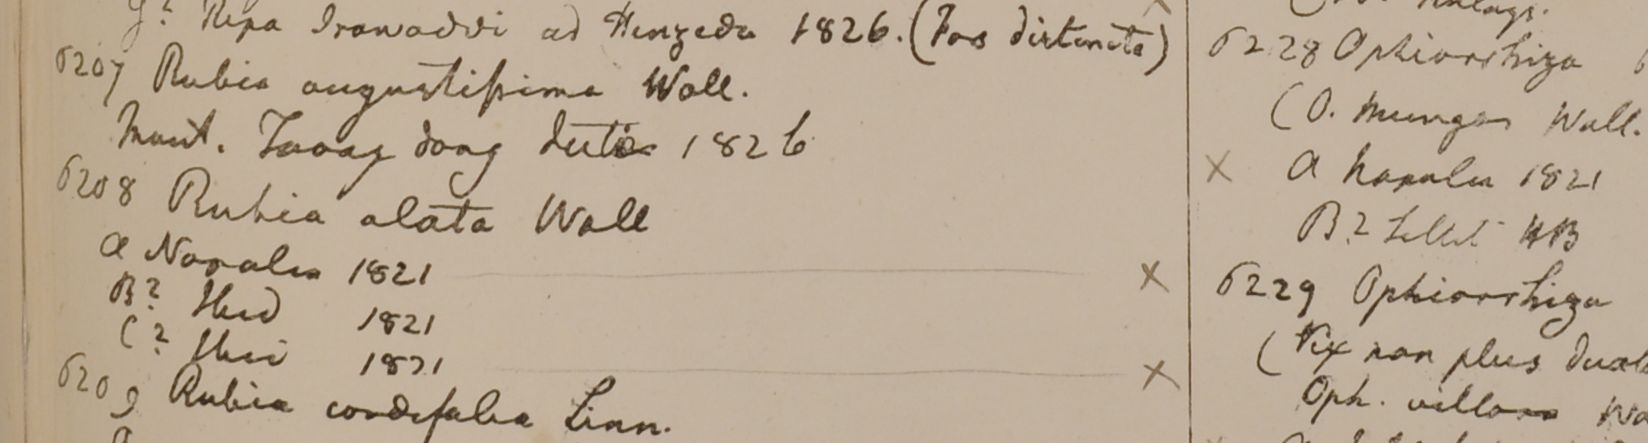 G? Ripa Irawaddi ad Henzeda 1826. (Fors distincta)
6207 Rubia angustissima Wall.
Mont. Taong dong 1826
6208 Rubia alata Wall
A Napalia 1821 X
B? Ibid 1821
C? Ibid 1821 X
6209 Rubia cordifolia Linn.
6228 Ophiorrhiza
(O. Mungos Wall.
X A Napalia 1821
B? Sillet HB
6229 Ophiorrhiza
(Vix non plus
Oph. villosa